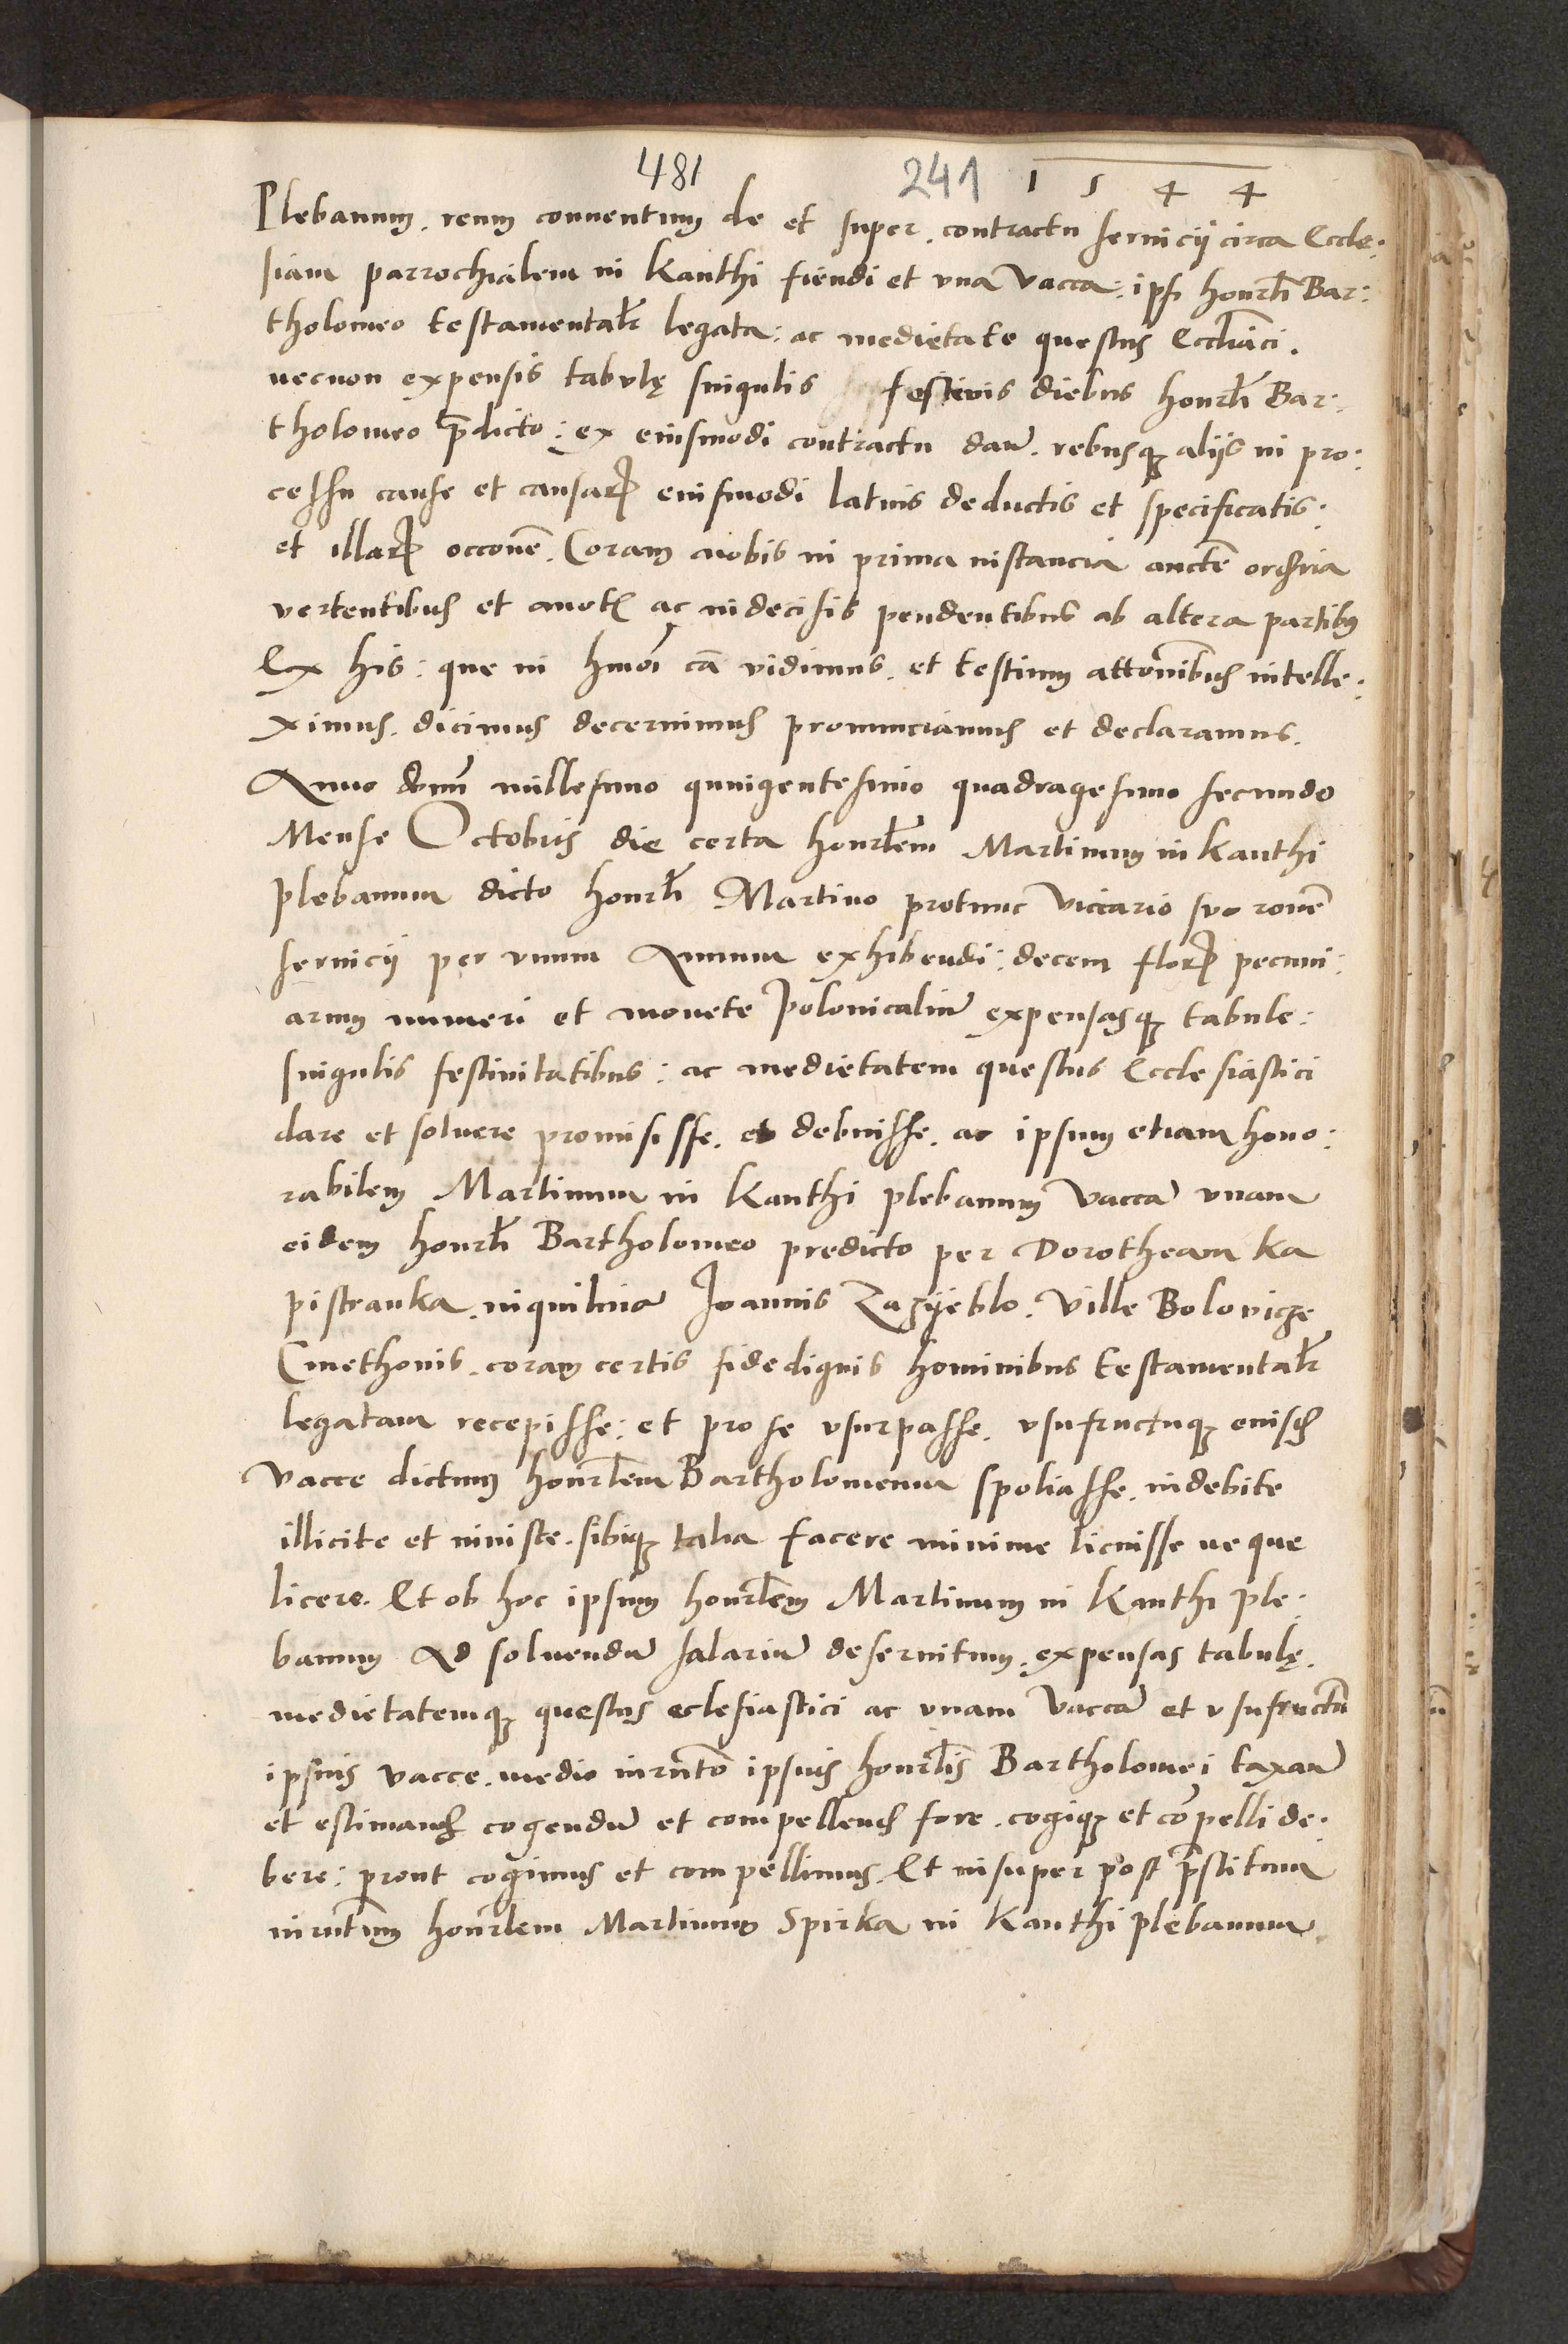 481 241 1 5 4 4
Plebanum. reum conuentum de et super. contractu seruicij circa Eccle:
siam parrochialem in Kanthi fiendi et vna vacca: ipsi honorli Bar:
tholomeo testamentalr legata: ac medietate questus Eccliaci.
necnon expensis tabulę singulis festiuis diebus honorli Bar:
tholomeo p̄dicto: ex eiusmodi contractu dan̄. rebusq3 alijs in pro:
cessu cause et causarꝝ eiusmodi latius deductis et specificatis:
et illarꝝ occone. Coram nobis in prima instancia aucte ordria
vertentibus et mot ac indecisis pendentibus ab altera partibus
Ex his: que in hmoi cā vidimus. et testium attonibus intelle:
ximus. dicimus decernimus pronunciamus et declaramus.
Anno domi millesimo quingentesimo quadragesimo secundo
Mense Octobris die certa honorlem Martinum in Kanthi
plebanum dicto honorli Martino protunc viccario suo rone
seruicij per vnum Annum exhibendi: decem florꝝ pecuni:
arum numeri et monete Polonicaliū expensasq3 tabule:
singulis festiuitatibus: ac medietatem questus Ecclesiastici
dare et soluere promisisse. et debuisse. ac ipsum etiam hono:
rabilem Martinum in Kanthi plebanum vaccā vnam
eidem honorli Bartholomeo predicto per Dorotheam Ka
pistranka. inquilinā Joannis Zazyeblo. Ville Bolovicze
Cmethonis. coram certis fidedignis hominibus testamentalr
legatam recepisse: et pro se vsurpasse. vsufructuq3 eiusd
vacce dictum honorlem Bartholomeum spoliasse. indebite
illicite et iniuste. sibiq3 talia facere minime licuisse neque
licere. Et ob hoc ipsum honorlem Martinum in Kanthi ple:
banum Ad soluendū salariū deseruitum. expensas tabulę.
medietatemq3 questus eclesiastici ac vnam vaccā et vsufructū
ipsius vacce. medio iurnto ipsius honorlis Bartholomei taxan̄
et estimand cogendū et compellend fore. cogiq3 et cōpelli de:
bere: prout cogimus et compellimus. Et insuper post p̄stitum
iurntum honorlem Martinum Spirka in Kanthi plebanum.